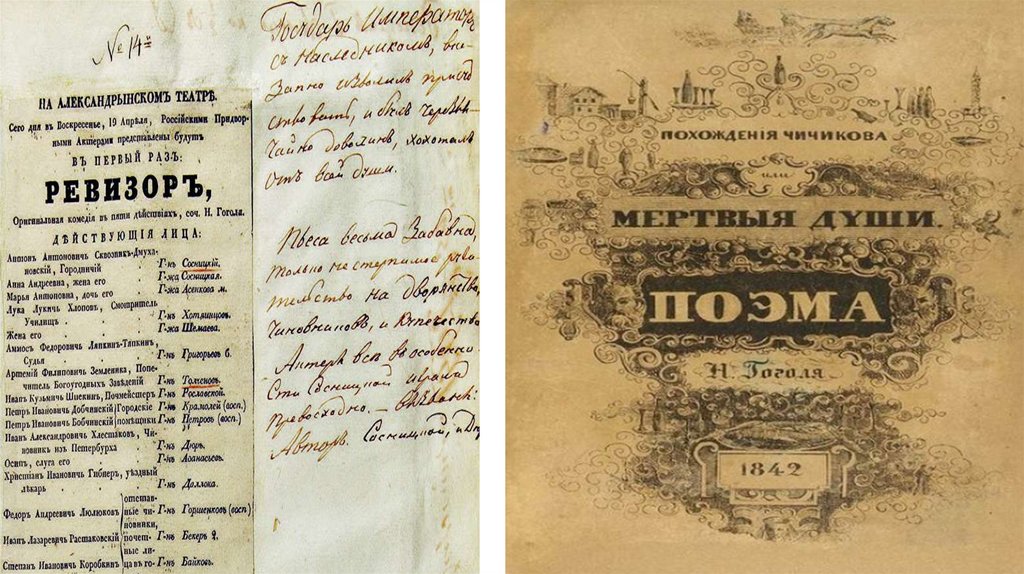 № 14й
НА АЛЕКСАНДРЫНСКОМЪ ТЕАТРѢ.
Сего дня въ Воскресенье, 19 Апрѣля, Россійскими Придвор-
ными Актерами представлены будутъ
ВЪ ПЕРВЫЙ РАЗЪ:
РЕВИЗОРЪ,
Оригинальная комедія въ пяти дѣйствіяхъ, соч. Н. Гоголя.
ДѢЙСТВУЮЩІЯ ЛИЦА:
Антонъ Антоновичъ Сквозникъ-Дмуха-
новскій, Городничій Г-нъ Сосницкій.
Анна Андреевна, жена его Г-жа Сосницкая.
Марья Антоновна, дочь его Г-жа Асенкова м.
Лука Лукичъ Хлоповъ, Смотритель
Училищъ Г-нъ Хотяинцовъ.
Жена его Г-жа Шемаева.
Амиосъ Федоровичъ Ляпкинъ-Тяпкинъ,
Судья Г-нъ Григорьевъ б.
Артемій Филиповичъ Земляника, Попе-
читель Богоугодныхъ Заведеній Г-нъ Толченовъ.
Иванъ Кузьмичъ Шпекинъ, Почмейстеръ Г-нъ Рославской.
Петръ Ивановичъ Добчинскій Городскіе Г-нъ Крамолей (восп.)
Петръ Ивановичъ Бобчинскій помѣщики Г-нъ Петровъ (восп.)
Иванъ Александровичъ Хлестаковъ, Чи-
новникъ изъ Петербурха Г-нъ Дюръ.
Осипъ, слуга его Г-нъ Афанасьевъ.
Христіанъ Ивановичъ Гибнеръ, уѣздный
лѣкарь Г-нъ Даллока.
Федоръ Андреевичъ Люлюковъ Г-нъ Горшенковъ (восп)
Иванъ Лазаревичъ Растаковскій Г-нъ Бекеръ 2.
Степанъ Ивановичъ Коробкинъ Г-нъ Байковъ.
отстав-
ные чи-
новники,
почет-
ные ли-
ца въ го-
Государь Императоръ
съ Наслѣдникомъ, вне-
запно изволилъ присут
ствовать, и былъ чрезвы
чайно доволинъ, хохоталъ
отъ всей души.
Пьеса весьма забавна,
только нестерпимое руга
тельство на дворянство,
чиновниковъ, и купечество
Актеры все въ особенно
сти Сосницкой играли
превосходно. — вызваны:
Авторъ. Сосницкой, и Дю
ПОХОЖДЕНІЯ ЧИЧИКОВА
ИЛИ
МЕРТВЫЯ ДУШИ.
ПОЭМА
Н. Гоголя
1842